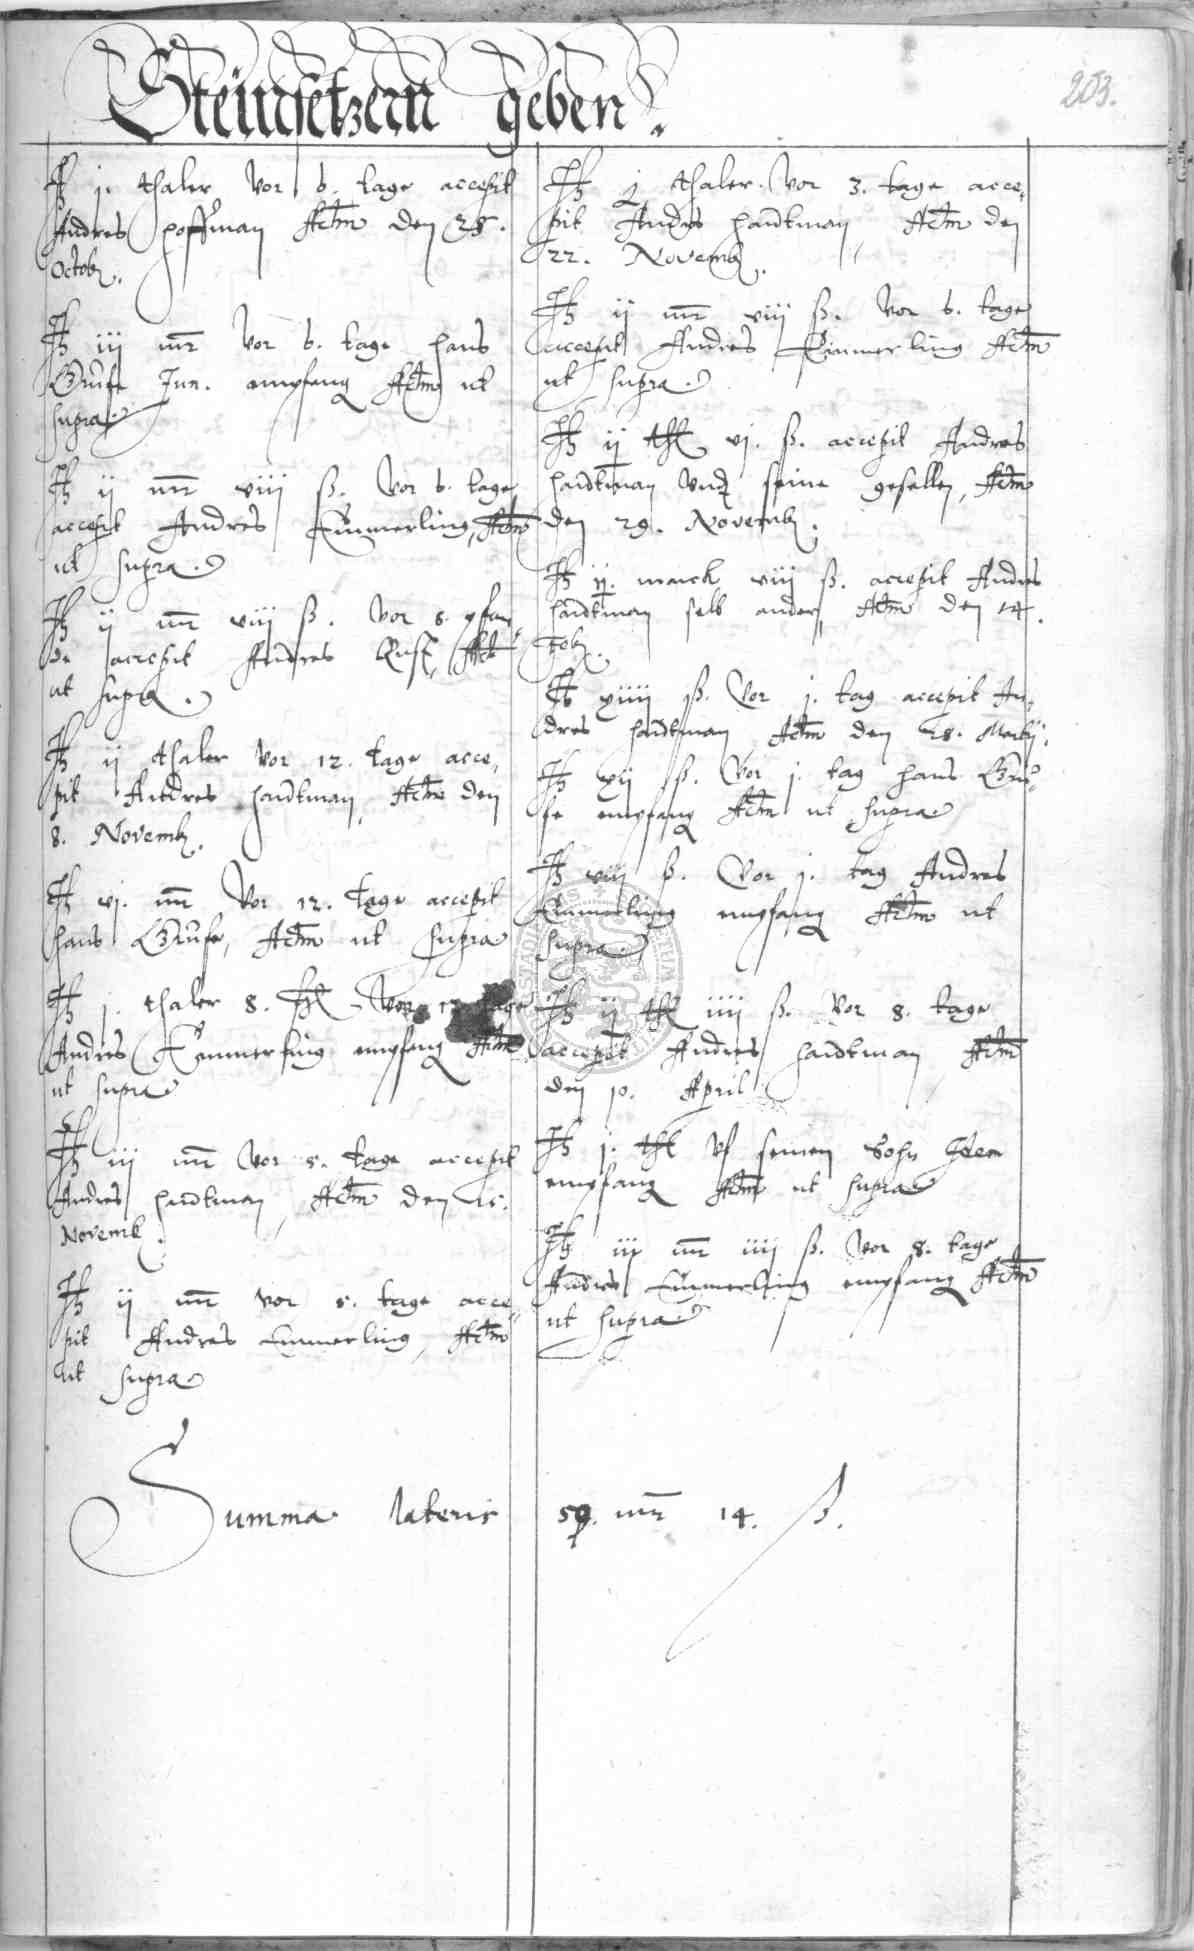 Steinsetzern geben.
203.
It j. thaler vor 6. tage accepit
Andres hoffman Actm den 25.
Octob.
It iij mr vor 6. tage hans
Grufe Jun. empfang Actm ut
supra
It ij mr viij ß. vor 6. tage
accepit Andres Emmerling, Actm
ut supra.
It ij mr viij ß. vor 8.
accepit Andres Act
ut supra.
It ij thaler vor 12. tage acce,
pit Andres hardtman, Actm den
8. Novemb.
It vj. mr vor 12. tage accepit
hans Grufe, Actm ut supra
It j. thaler 8. vor 12 tage
Andres Emmerling empfang Actm
ut supra
It iij mr vor 5. tage accepit
Andres hardtman, Actm den 15.
Novemb.
It ij mr vor 5. tage acce,
pit Andres Emmerling, Actm
ut supra
It j thaler. vor 3. tage acce,
pit Andres hardtman, Actm den
22. Novemb.
It ij mr viij ß. vor 6. tage
accepit Andres Emmerling Actm
ut supra.
It ij thl vj. ß. accepit Andres
hardtman vnd seine gesellen, Actm
den 29. Novemb.
It ij. marck viij ß. accepit Andres
hardtman selb ander, Actm den 14.
Feb.
It xiiij ß. vor j. tag accepit An,
dres hardtman, Actm den 28. Martij.
It xij ß. vor j. tag hans Gru,
fe empfang Actm ut supra
It viij ß. vor j. tag Andres
Emmerling empfang Actm ut
supra.
It ij thl iiij ß. vor 8. tage
accepit Andres hardtman Actm
den 10. April
It j. thl vf seinen Sohn Idem
empfang Actm ut supra
It iij mr iiij ß. vor 8. tage
Andres Emmerling empfang Actm
ut supra
Summa lateris 59. mr 14. ß.